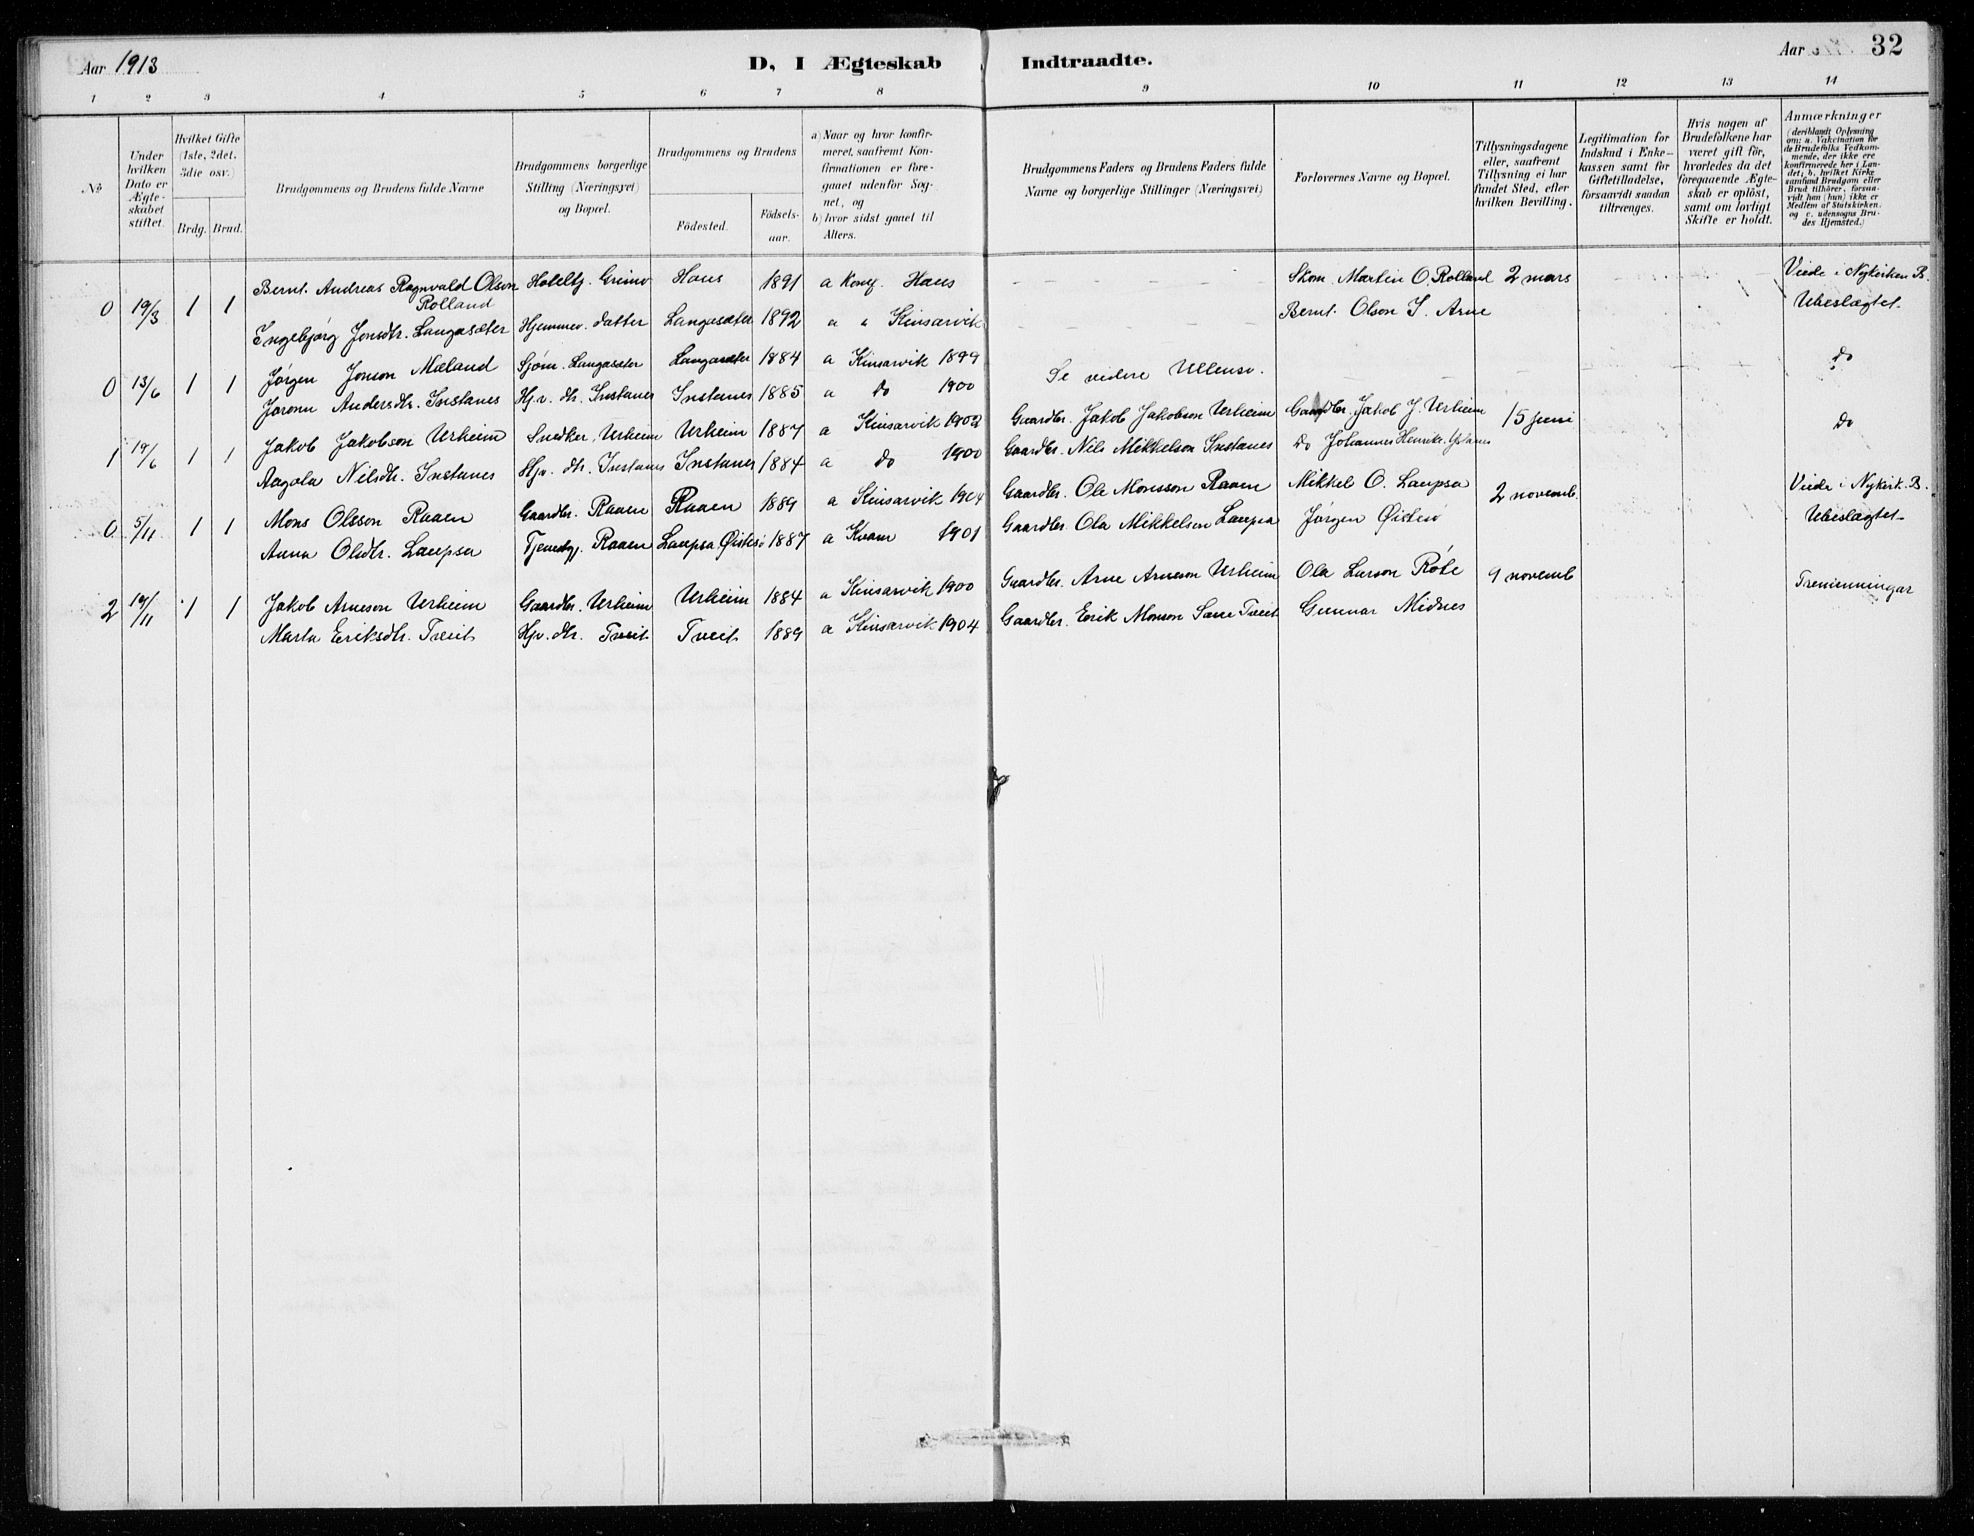 Aar 1913
D, I Ægteskab Indtraadte.
Aar
32
1 2 3 4 5 6 7 8 9 10 11 12 13 14
No
Under hvilken Dato er Ægteskabet stiftet.
Hvilket Gifte (1ste, 2det, 3die osv.)
Brdg. Brud.
Brudgommens og Brudens fulde Navne
Brudgommens borgerlige Stilling (Næringsvei) og Bopæl.
Brudgommens og Brudens
Fødested.
Fødsels-aar.
a) Naar og hvor konfirmeret, saafremt Konfirmationen er foregaaet udenfor Sognet, og
b) hvor sidst gaaet til Alters.
Brudgommens Faders og Brudens Faders fulde Navne og borgerlige Stillinger (Næringsvei)
Forlovernes Navne og Bopæl.
Tillysningsdagene eller, saafremt Tillysning ei har fundet Sted, efter hvilken Bevilling.
Legitimation for Indskud i Enkekassen samt for Giftetilladelse, forsaavidt saadan tiltrænges.
Hvis nogen af Brudefolkene har været gift før, hvorledes da det foregaaende Ægteskab er opløst, samt om lovligt Skifte er holdt.
Anmærkninger (deriblandt Oplysning om: a. Vakcination for de Brudefolks Vedkommende, der ikke ere konfirmerede her i Landet; b. hvilket Kirkesamfund Brudgom eller Brud tilhører, forsaavidt han (hun) ikke er Medlem af Statskirken. og c. udensogns Brudes Hjemsted.)
0 19/3 1 1 Bernt Andreas Ragnvald Olson Rolland Hoteltj. Grimo Haus 1891 a Konf. Haus Skom. Martin O. Rolland 2 mars Viede i Nykirken B.
Ingebjørg Jonsdtr. Langasæter Hjemmev. datter Langasæter 1892 a " Kinsarvik Bernt Olson I. Arne Ubeslægtet
0 13/6 1 1 Jørgen Jonson Mæland Sjøm. Langasæter Langasæter 1884 a Kinsarvik 1899 Se videre Ullensv. Do
Joronn Andersdtr. Instanes Hjv. dtr. Instanes Instanes 1885 a Do 1900
1 19/6 1 1 Jakob Jakobson Urheim Snedker, Urheim Urheim 1887 a Kinsarvik 1902 Gaardbr. Jakob Jakobson Urheim Gaardbr. Jakob J. Urheim 15 juni Do
Aagola Nilsdtr. Instanes Hjv. dtr. Instanes Instanes 1884 a Do 1900 Gaardbr. Nils Mikkelson Instanes Do Johannes Henriks.
0 5/11 1 1 Mons Olsson Raaen Gaardbr. Raaen Raaen 1889 a Kinsarvik 1904 Gaardbr. Ola Monsson Raaen Mikkel O. Laupsa 2 novemb. Viede i Nykirk. B.
Anna Olsdtr. Laupsa Tjenestpj. Raaen Laupsa Øistesø 1887 a Kvam 1901 Gaardbr. Ola Mikkelson Laupsa Jørgen Øistesø Ubeslægtet
2 19/11 1 1 Jakob Arneson Urheim Gaardbr. Urheim Urheim 1884 a Kinsarvik 1900 Gaardbr. Arne Arneson Urheim Ola Larson Røte 9 novemb Tremenningar
Marta Eriksdtr. Tveit Hjv. dtr. Tveit Tveit 1889 a Kinsarvik 1904 Gaardbr. Erik Monson Tveit Gunnar Midnes